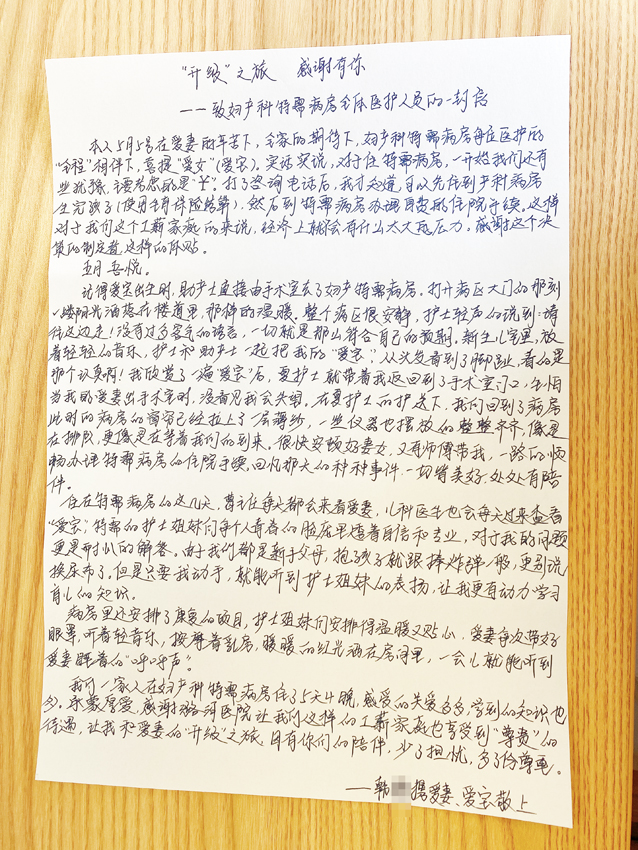 “升级”之旅 感谢有你
——致妇产科特需病房全体医护人员的一封信
本人5月5号在爱妻的辛苦下，全家的期待下，妇产科特需病房每位医护的
“全程”相伴下，喜提“爱女”（爱宝）。实话实说，对于住特需病房，一开始我们还有
些犹豫，主要考虑的是“￥”。打了咨询电话后，我才知道，可以先住到产科病房
生完孩子（使用生育保险结算），然后到特需病房办理自费的住院手续。这样
对于我们这个工薪家庭的来说，经济上就会有什么太大底压力。感谢这个决
策的制定者，这样的体贴。
五月 吾悦。
记得爱宝出生时，助产士直接由手术室去了妇产特需病房。打开病区大门的那刻
一缕阳光洒落在楼道里，那样的温暖。整个病区很安静，护士轻声的说到：请
往这边走！没有过多客气的语言，一切就是那么符合自己的预期。新生儿室里，放
着轻轻的音乐，护士和助产士一起把我的“爱宝”从头发看到了脚趾，看的是
那个认真啊！我欣赏了一遍“爱宝”后，夏护士就带着我返回到了手术室门口，生怕
当我的爱妻出手术室时，没看见我会失望。在夏护士的护送下，我们回到了病房
此时的病房的窗帘已经拉上了一层薄纱，一些仪器也摆放的整整齐齐，像是
在排队，更像是在等着我们的到来。很快安顿好妻女，又有师傅带我，一路的顺
畅办理特需病房的住院手续。回忆那天的种种事件，一切皆美好，处处有陪
伴。
住在特需病房的这几天，曹主任每天都会来看爱妻，儿科医生也会每天过来查看
“爱宝”，特需的护士姐妹们每个人青春的脸庞里透着自信和专业，对于我的问题
更是耐心的解答。由于我们都是新手父母，抱了孩子就跟捧炸弹一般，更别说
换尿布了。但是只要我动手，就能听到护士姐妹的表扬，让我更有动力学习
育儿的知识。
病房里还安排了康复的项目，护士姐妹们安排得温暖又贴心，爱妻每次带好
眼罩，听着轻音乐，按摩着乳房，暖暖的红光洒在房间里，一会儿就能听到
爱妻睡着的“呼呼声”。
我们一家人在妇产科特需病房住了5天4晚，感受的关爱多多，学到的知识也
多。承蒙厚爱，感谢潞河医院让我们这样的工薪家庭也享受到“尊贵”的
待遇，让我和爱妻的“升级”之旅，因有你们的陪伴，少了担忧，多了份尊重。
——韩 携爱妻、爱宝敬上